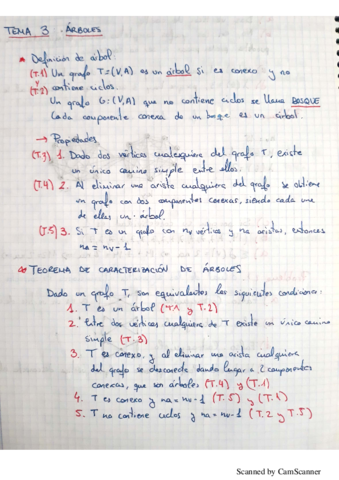 TEMA 3 . ÁRBOLES
* Definición de árbol
(T.1) Un grafo T=(V,A) es un árbol si es conexo y no
(T.2) contiene ciclos.
Un grafo G=(V,A) que no contiene ciclos se llama BOSQUE
Cada componente conexa de un bosque es un árbol.
→ Propiedades
(T.3) 1. Dado dos vértices cualesquiera del grafo T, existe
un único camino simple entre ellos.
(T.4) 2. Al eliminar una arista cualquiera del grafo se obtiene
un grafo con dos componentes conexas, siendo cada una
de ellas un árbol.
(T.5) 3. Si T es un grafo con nv vértices y na aristas, entonces
na = nv - 1
* TEOREMA DE CARACTERIZACIÓN DE ÁRBOLES
Dado un grafo T, son equivalentes las siguientes condiciones:
1. T es un árbol (T.1 y T.2)
2. Entre dos vértices cualquiera de T existe un único camino
simple (T.3)
3. T es conexo, y al eliminar una arista cualquiera
del grafo se desconecta dando lugar a 2 componentes
conexas, que son árboles (T.4) y (T.1)
4. T es conexo y na = nv - 1 (T.5) y (T.1)
5. T no contiene ciclos y na = nv - 1 (T.2 y T.5)
Scanned by CamScanner